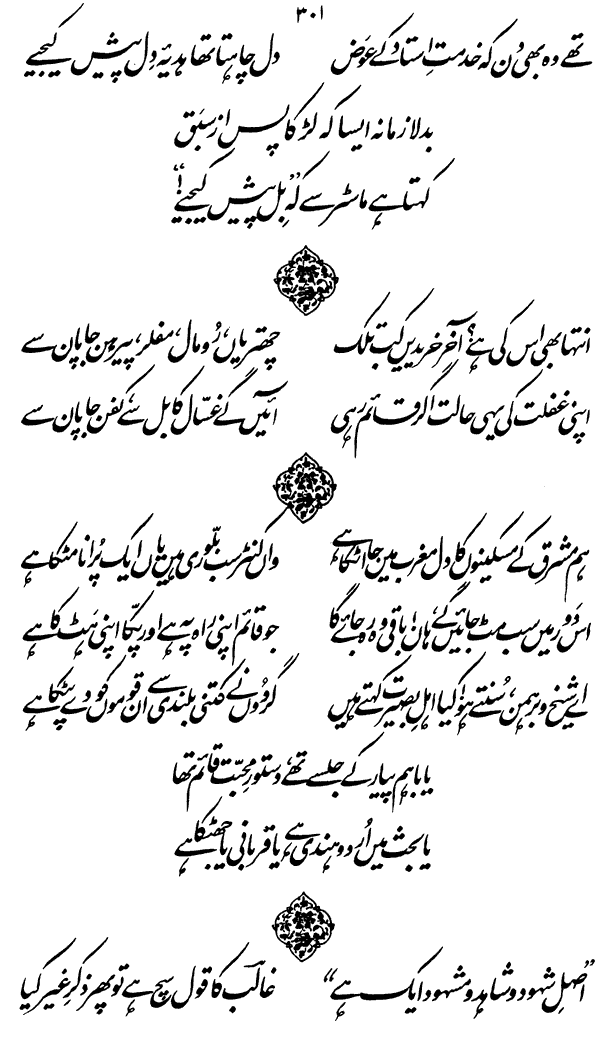 ۳۰۱
تھے وہ بھی دن کہ خدمتِ استاد کے عوض دل چاہتا تھا ہدیۂ دل پیش کیجیے
بدلا زمانہ ایسا کہ لڑکا پس از سبق
کہتا ہے ماسٹر سے کہ ”بل پیش کیجیے!“
انتہا بھی اس کی ہے؟ آخر خریدیں کب تلک چھتریاں، رُومال، مفلر، پیرہن جاپان سے
اپنی غفلت کی یہی حالت اگر قائم رہی آئیں گے غسّال کابل سے، کفن جاپان سے
ہم مشرق کے مسکینوں کا دل مغرب میں جا اٹکا ہے واں کنٹر سب بلّوری ہیں یاں ایک پُرانا مٹکا ہے
اس دَور میں سب مٹ جائیں گے، ہاں! باقی وہ رہ جائے گا جو قائم اپنی راہ پہ ہے اور پکّا اپنی ہٹ کا ہے
اے شیخ و برہمن، سُنتے ہو! کیا اہلِ بصیرت کہتے ہیں گردُوں نے کتنی بلندی سے ان قوموں کو دے پٹکا ہے
یا باہم پیار کے جلسے تھے، دستورِ محبّت قائم تھا
یا بحث میں اُردو ہندی ہے یا قربانی یا جھٹکا ہے
”اصلِ شہود و شاہد و مشہود ایک ہے“ غالبؔ کا قول سچ ہے تو پھر ذکرِ غیر کیا